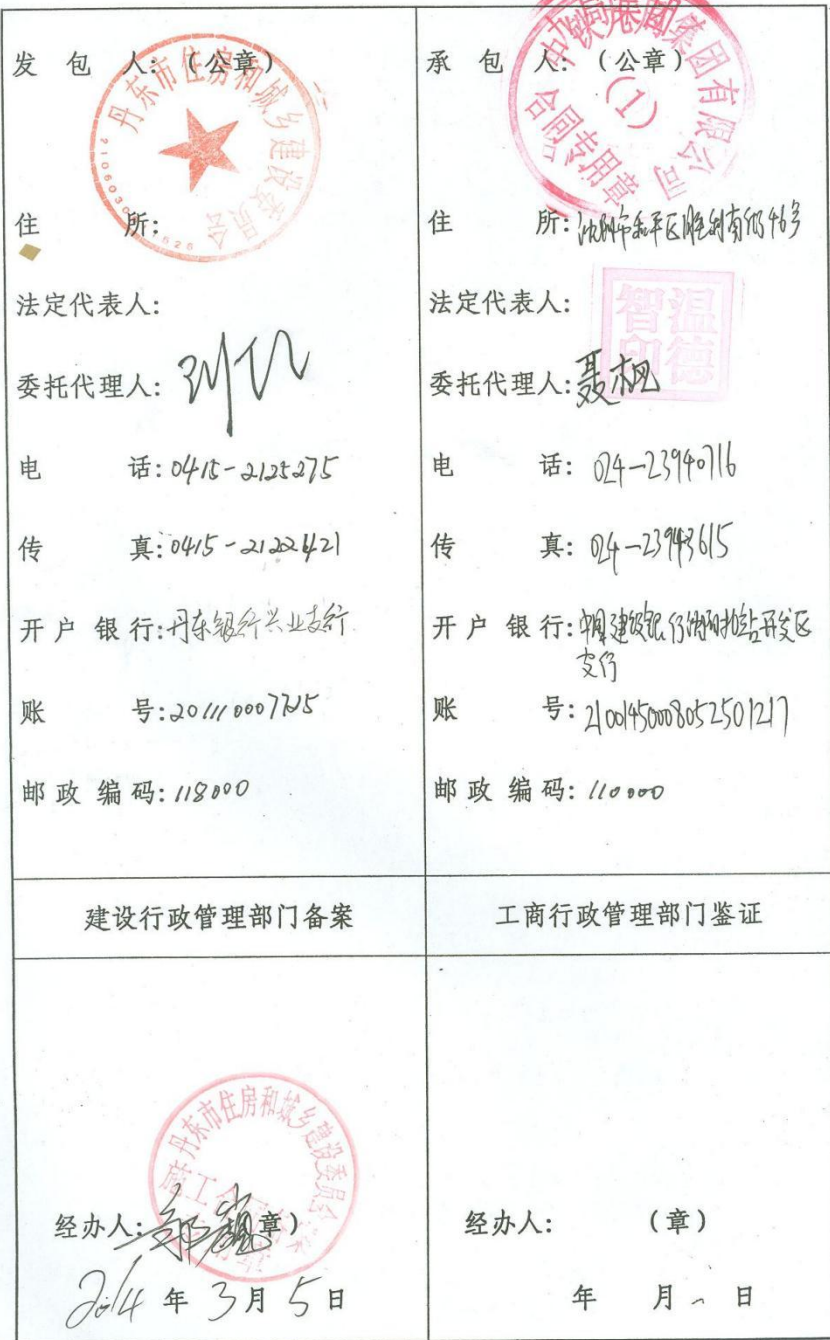 发 包 人:(公章)
丹东市住房和城乡建设委员会
住 所:
法定代表人:
委托代理人:
电 话:0415-2125275
传 真:0415-2122421
开 户 银 行:丹东银行兴业支行
账 号:
邮 政 编 码:118000
承 包 人:(公章)
集团有限公司
(1)
合同专用章
住 所:沈阳市和平区胜利南街46号
法定代表人:
温德
智印
委托代理人:聂枫
电 话:024-23940716
传 真:024-23943615
开 户 银 行:中国建设银行沈阳 开发区
支行
账 号:21001450008052501217
邮 政 编 码:110000
建设行政管理部门备案
工商行政管理部门鉴证
丹东市住房和城乡建设委员会
经办人: 章)
2014 年 3 月 5 日
经办人: (章)
年 月 日